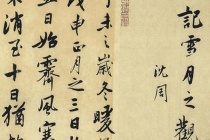 記雪月之觀
沈周
丁未之歲冬暖
戊申正月之三日
五日始霽風寒
消至十日猶